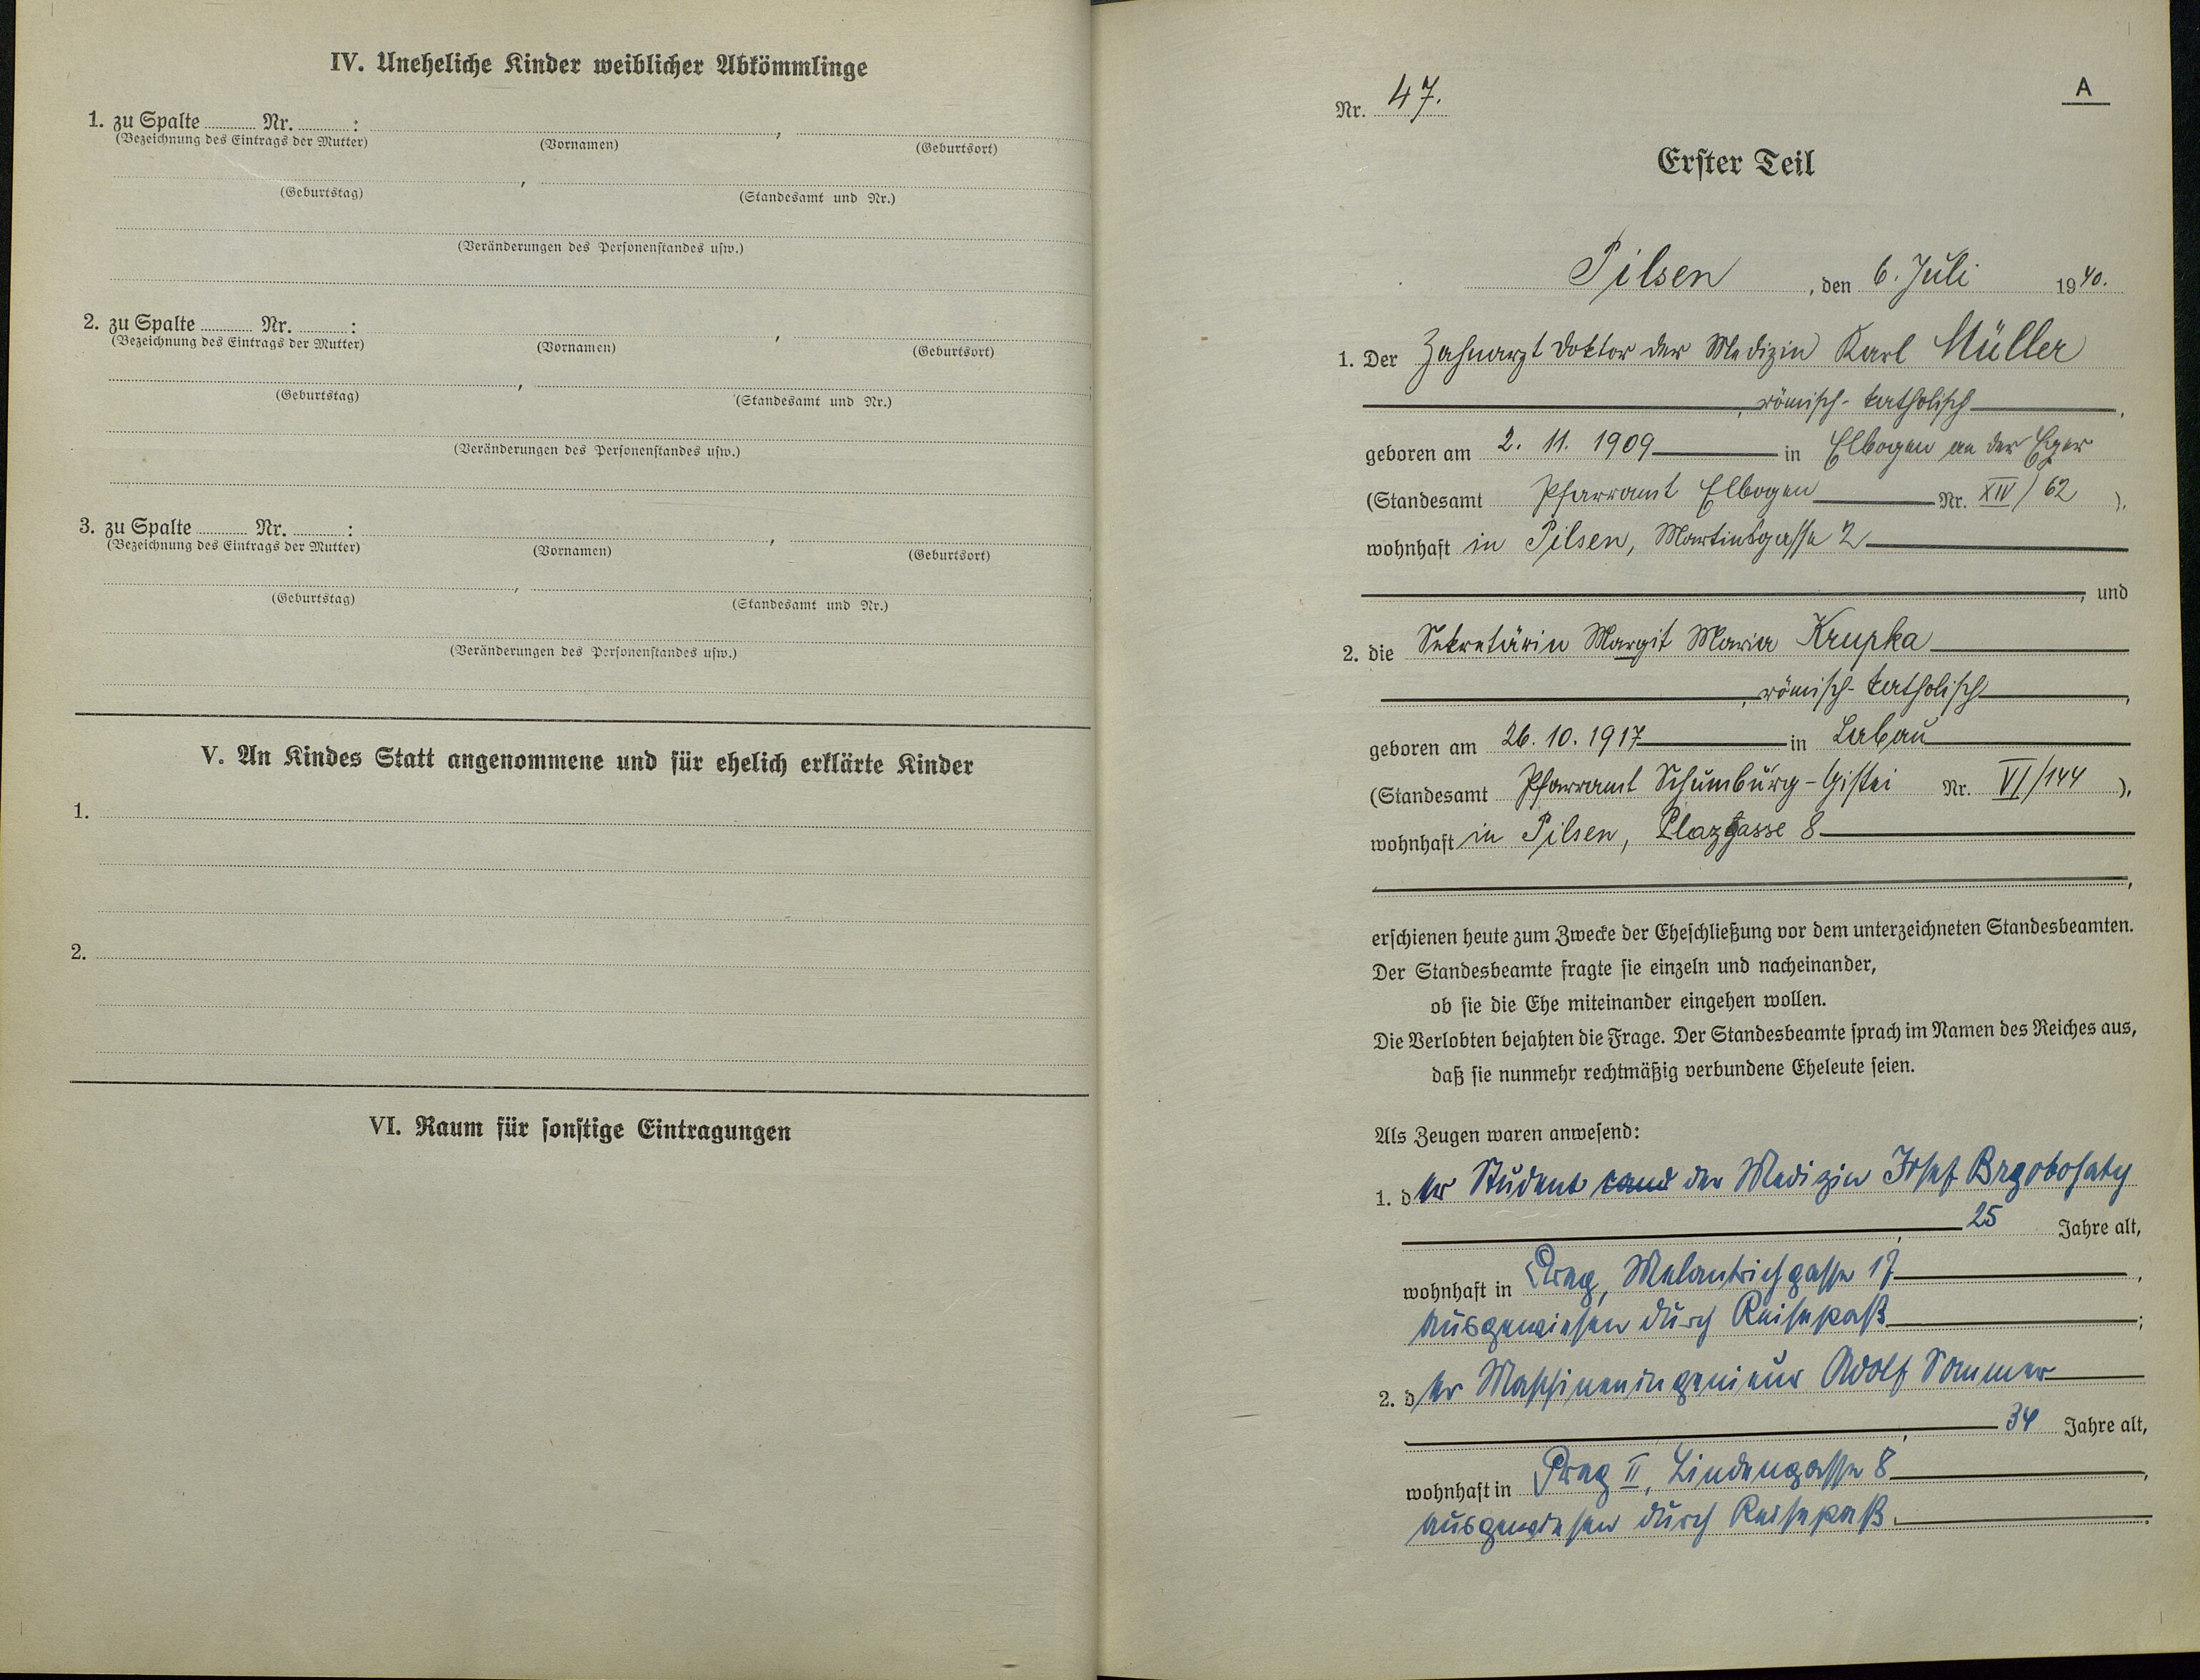 IV. Uneheliche Kinder weiblicher Abkömmlinge
1. zu Spalte Nr. : ,
(Bezeichnung des Eintrags der Mutter) (Vornamen) (Geburtsort)
,
(Geburtstag) (Standesamt und Nr.)
(Veränderungen des Personenstandes usw.)
2. zu Spalte Nr. : ,
(Bezeichnung des Eintrags der Mutter) (Vornamen) (Geburtsort)
,
(Geburtstag) (Standesamt und Nr.)
(Veränderungen des Personenstandes usw.)
3. zu Spalte Nr. : ,
(Bezeichnung des Eintrags der Mutter) (Vornamen) (Geburtsort)
,
(Geburtstag) (Standesamt und Nr.)
(Veränderungen des Personenstandes usw.)
V. An Kindes Statt angenommene und für ehelich erklärte Kinder
1.
2.
VI. Raum für sonstige Eintragungen
A
Nr. 47.
Erster Teil
Pilsen, den 6. Juli 1940.
1. Der Zahnarzt Doktor der Medizin Karl Müller
, römisch-katholisch,
geboren am 2. 11. 1909 in Elbogen an der Eger
(Standesamt Pfarramt Elbogen Nr. XIV/62),
wohnhaft in Pilsen, Martinsgasse 2
, und
2. die Sekretärin Margit Maria Krupka
, römisch-katholisch,
geboren am 26. 10. 1917 in Labau
(Standesamt Pfarramt Schumburg-Gistei Nr. VI/144),
wohnhaft in Pilsen, Plazgasse 8
,
erschienen heute zum Zwecke der Eheschließung vor dem unterzeichneten Standesbeamten.
Der Standesbeamte fragte sie einzeln und nacheinander,
ob sie die Ehe miteinander eingehen wollen.
Die Verlobten bejahten die Frage. Der Standesbeamte sprach im Namen des Reiches aus,
daß sie nunmehr rechtmäßig verbundene Eheleute seien.
Als Zeugen waren anwesend:
1. der Student der Medizin Josef Brzobohaty
, 25 Jahre alt,
wohnhaft in Prag, Melantrichgasse 17,
ausgewiesen durch Reisepaß;
2. der Maschineningenieur Adolf Sommer
, 34 Jahre alt,
wohnhaft in Prag II, Lindengasse 8,
ausgewiesen durch Reisepaß.